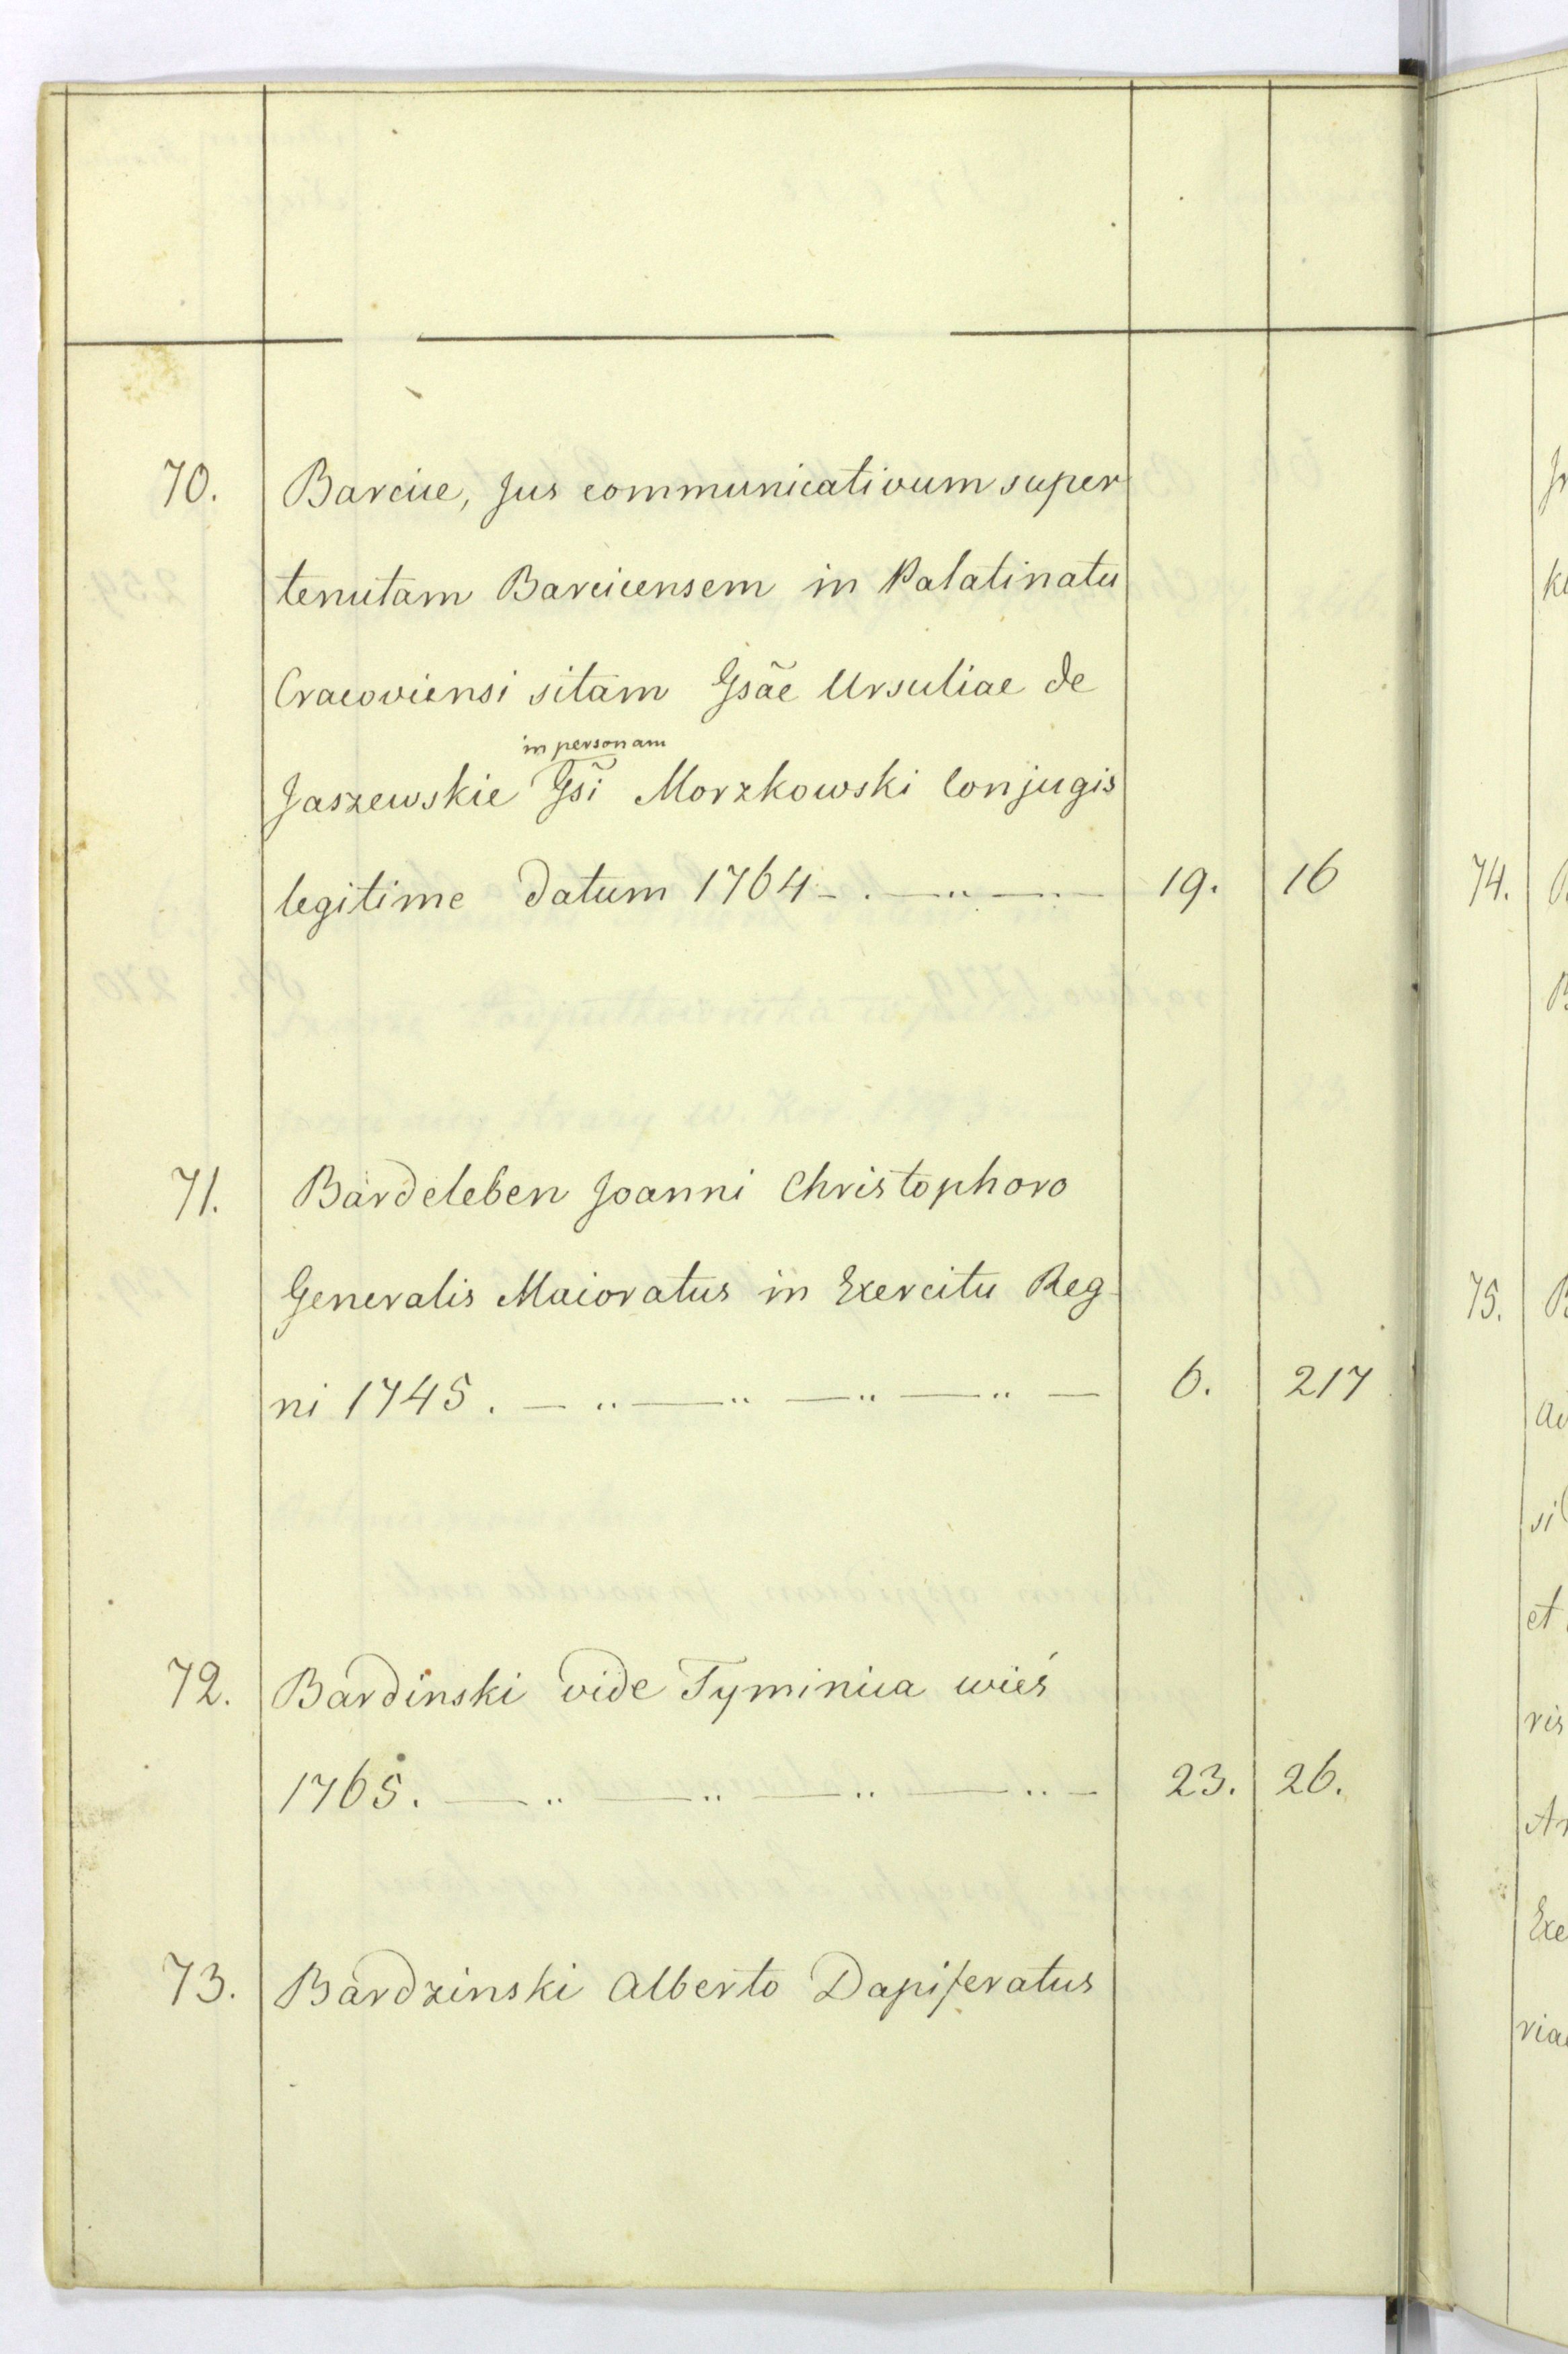 70. Barcice, Jus communicativum super
tenutam Barcicensem in Palatinatu
Cracoviensi sitam Gsãe Ursuliae de
in personam
Jaszewskie Gsĩ Morzkowski Conjugis
legitime datum 1764 - . — „ — . — 19. 16
71. Bardeleben Joanni Christophoro
Generalis Maioratus in Exercitu Reg-
ni 1745. — „ — „ — „ — „ — 6. 217
72. Bardinski vide Tyminica wieś
1765. — „ — „ — „ — „ — 23. 26.
73. Bardzinski Alberto Dapiferatus
74.
75.
et
ris